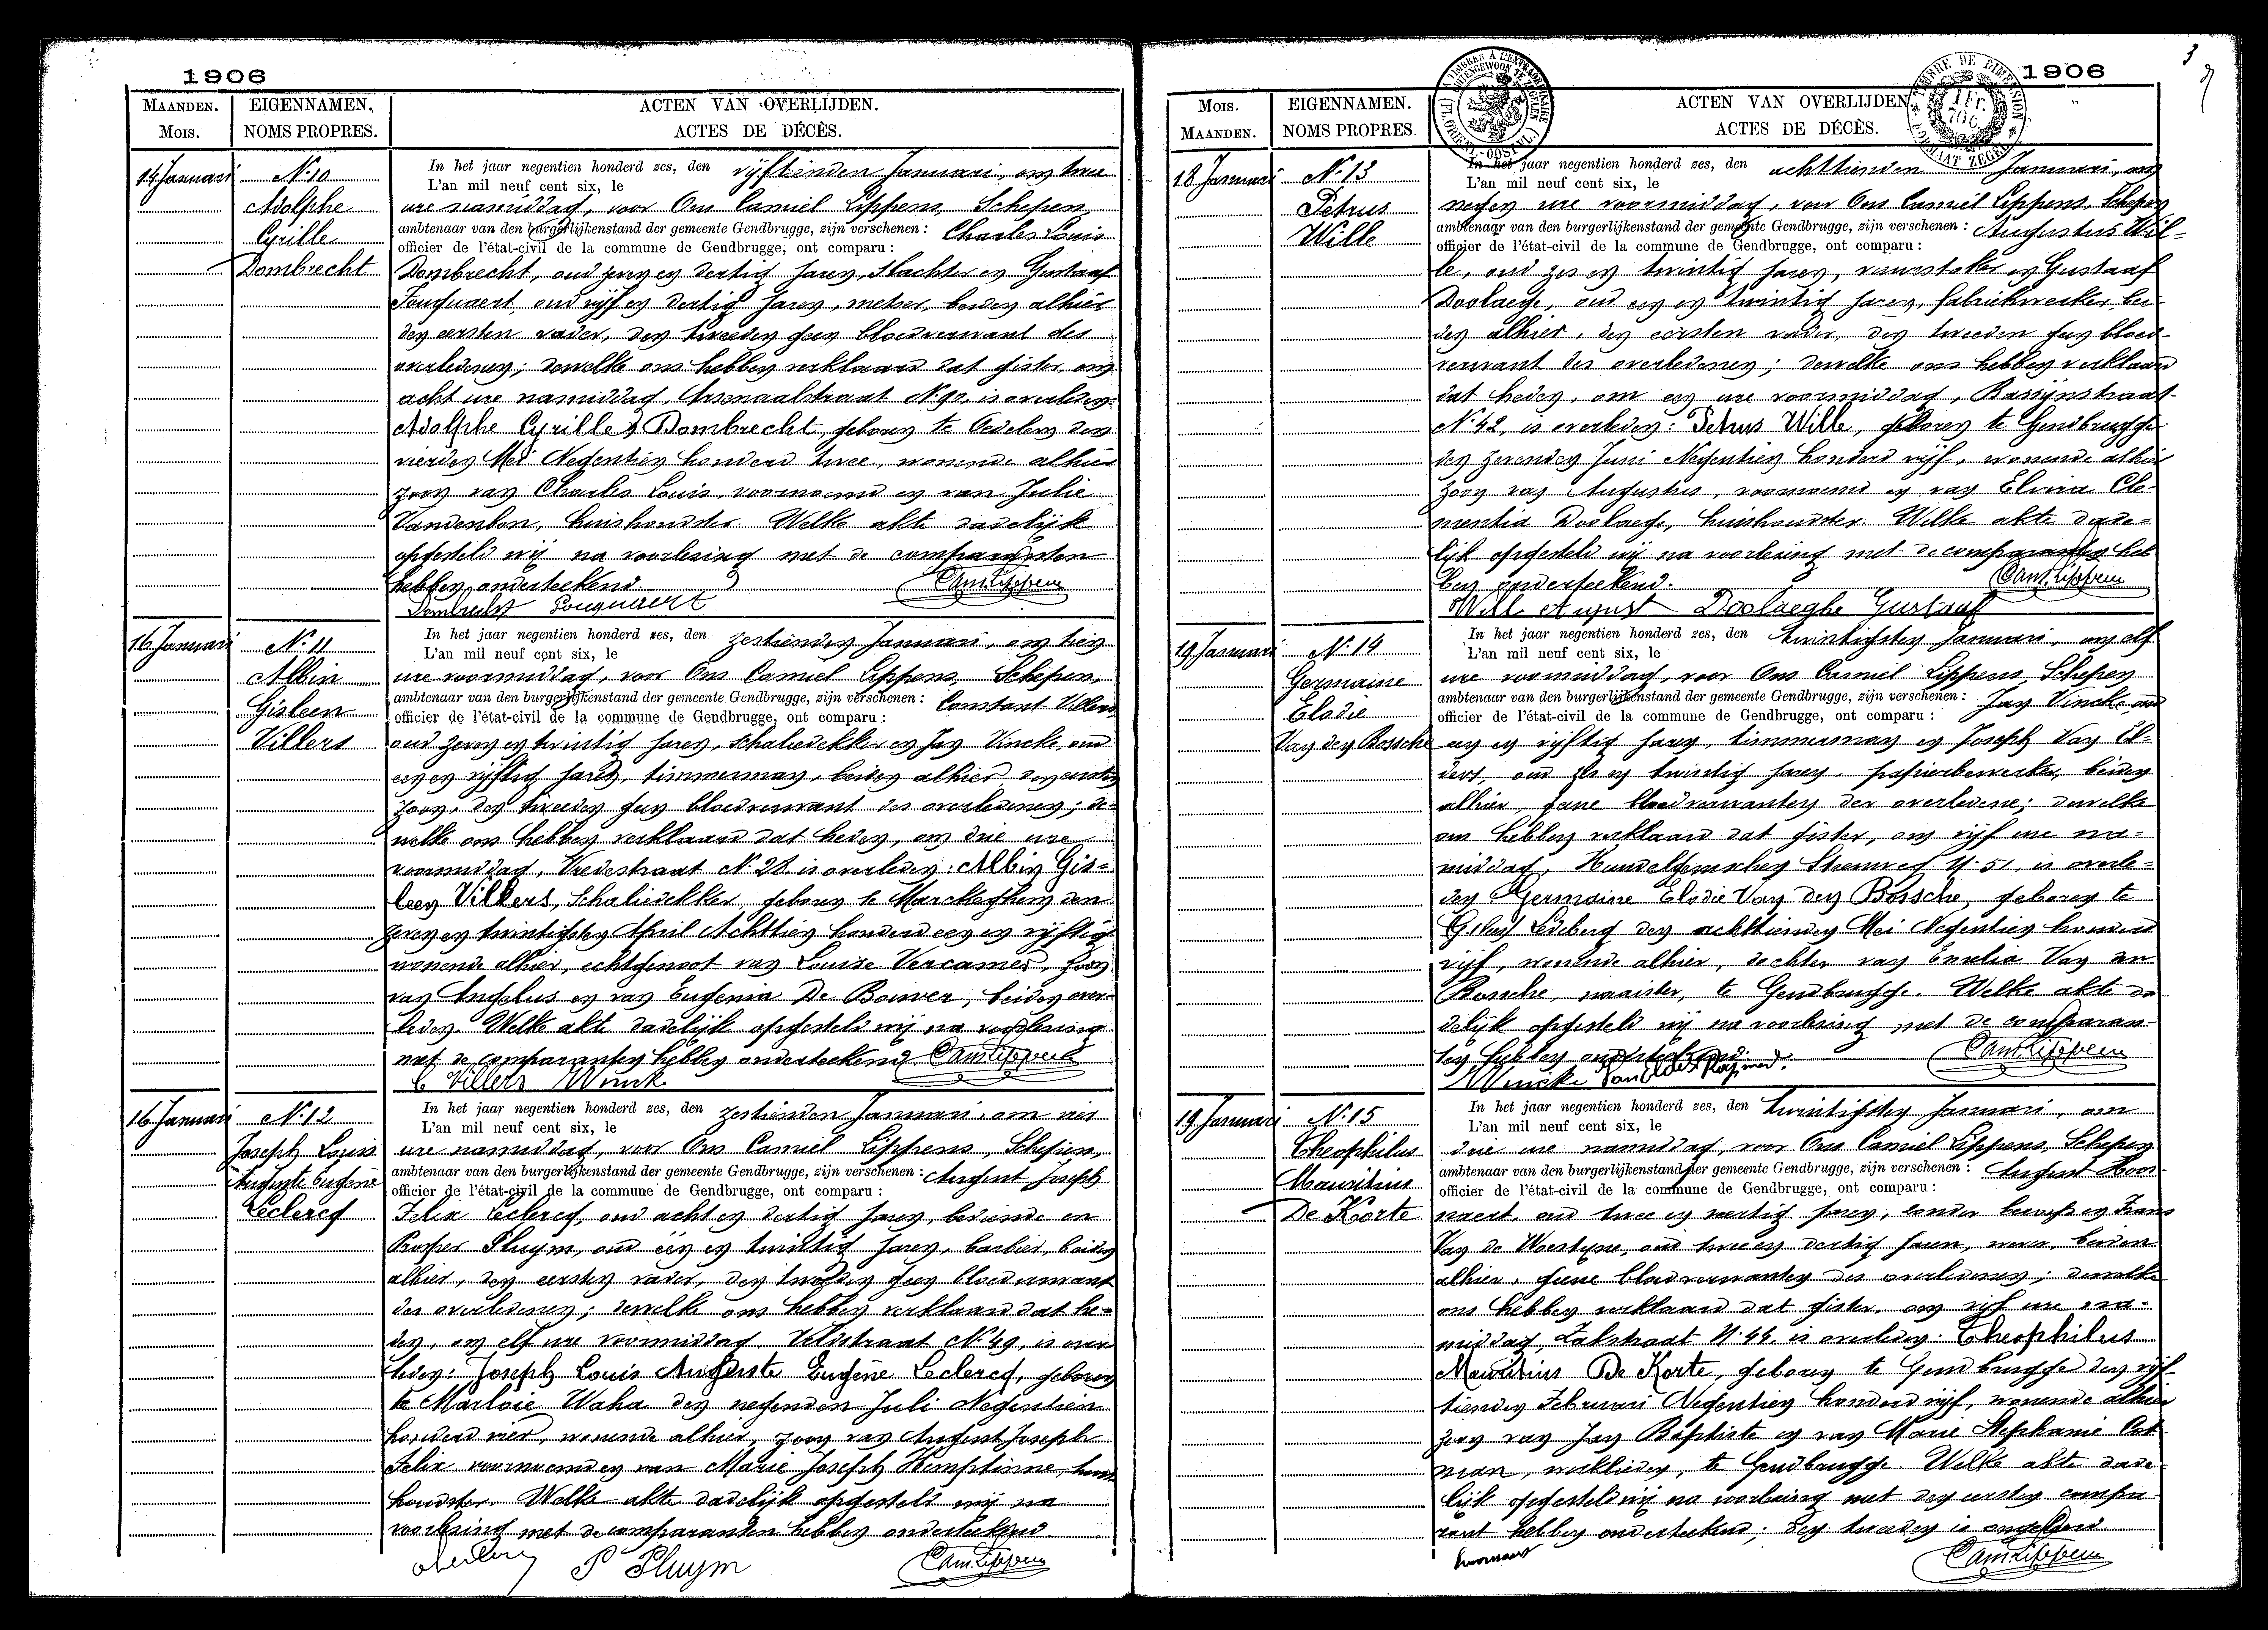 1906
MAANDEN.
Mois.
EIGENNAMEN.
NOMS PROPRES.
ACTEN VAN OVERLIJDEN.
ACTES DE DÉCÈS.
14 Januari
N. 10
Adolphe
Cyrille
Dombrecht
In het jaar negentien honderd zes, den vijftienden Januari, om twee
L'an mil neuf cent six, le
ure namiddag, voor Ons Camiel Lippens, Schepen,
ambtenaar van den burgerlijkenstand der gemeente Gendbrugge, zijn verschenen : Charles Louis
officier de l'état-civil de la commune de Gendbrugge, ont comparu :
Dombrecht, oud zeven en dertig jaren, slachter en Gustaaf
oud vijf en dertig jaren, metser, beiden alhier
den eersten vader, den tweeden geen bloedverwant des
overledenen; dewelke ons hebben verklaard dat gister, om
acht ure namiddag, Arsenaalstraat N. 90, is overleden:
Adolphe Cyrille Dombrecht, geboren te Oedelem den
vierden Mei Negentien honderd twee, wonende alhier
zoon van Charles Louis, voornoemd en van Julie
huishoudster. Welke akte dadelijk
opgesteld wij na voorlezing met de comparanten
hebben onderteekend.
Dombrecht
16 Januari
N. 11
Albin
Gisleen
Villers
In het jaar negentien honderd zes, den zestienden Januari, om tien
L'an mil neuf cent six, le
ure voormiddag, voor Ons Camiel Lippens, Schepen,
ambtenaar van den burgerlijkenstand der gemeente Gendbrugge, zijn verschenen : Constant Villers
officier de l'état-civil de la commune de Gendbrugge, ont comparu :
oud zeven en twintig jaren, schaliedekker en Jan Vincke, oud
een en vijftig jaren, timmerman, beiden alhier den eersten
zoon, den tweeden geen bloedverwant des overledenen; de-
welke ons hebben verklaard dat heden, om drie ure
voormiddag, Vredestraat N. 28 is overleden: Albin Gis-
leen Villers, Schaliedekker geboren te Marckeghem den
zeven en twintigsten April Achttien honderd een en vijftig
wonende alhier, echtgenoot van Louise Vercamer, zoon
van Angelus en van Eugenia De Bouver, beiden over-
leden. Welke akte dadelijk opgesteld wij na voorlezing
met de comparanten hebben onderteekend. Cam. Lippens
C Villers
16 Januari
N. 12
Joseph Louis
Auguste Eugène
Leclercq
In het jaar negentien honderd zes, den zestienden Januari, om vier
L'an mil neuf cent six, le
ure namiddag, voor Ons Camiel Lippens, Schepen,
ambtenaar van den burgerlijkenstand der gemeente Gendbrugge, zijn verschenen : August Joseph
officier de l'état-civil de la commune de Gendbrugge, ont comparu :
Felix Leclercq, oud acht en dertig jaren, bediende en
Prosper Pluym, oud één en twintig jaren, barbier, beiden
alhier, den eersten vader, den tweeden geen bloedverwant
des overledenen; dewelke ons hebben verklaard dat he-
den, om elf ure voormiddag Veldstraat N. 49, is over-
leden: Joseph Louis Auguste Eugène Leclercq, geboren
te Marloie Waha den negenden Juli Negentien
honderd vier, wonende alhier, zoon van August Joseph
Felix voornoemd en van Marie Joseph Hemptinne, huis-
houdster. Welke akte dadelijk opgesteld wij na
voorlezing met de comparanten hebben onderteekend
P Pluym
Cam. Lippens
1906
3
Mois.
MAANDEN.
EIGENNAMEN.
NOMS PROPRES.
ACTEN VAN OVERLIJDEN.
ACTES DE DÉCÈS.
18 Januari
N. 13
Petrus
Wille
In het jaar negentien honderd zes, den achttienden Januari, om
L'an mil neuf cent six, le
negen ure voormiddag, voor Ons Camiel Lippens, Schepen
ambtenaar van den burgerlijkenstand der gemeente Gendbrugge, zijn verschenen : Augustus Wil-
officier de l'état-civil de la commune de Gendbrugge, ont comparu :
le, oud zes en twintig jaren, vuurstoker en Gustaaf
Doolaege, oud een en twintig jaren, fabriekwerker, bei-
den alhier, den eersten vader, den tweeden geen bloed-
verwant des overledenen; dewelke ons hebben verklaard
dat heden, om een ure voormiddag, Rassijnstraat
N. 42, is overleden: Petrus Wille, geboren te Gendbrugge
den zevenden Juni Negentien honderd vijf, wonende alhier
zoon van Augustus, voornoemd en van Elvira Cle-
mentia Doolaege, huishoudster. Welke akte dade-
lijk opgesteld wij na voorlezing met de comparanten heb-
ben onderteekend. Cam. Lippens
Wille August Doolaeghe Gustaaf
19 Januari
N. 14
Germaine
Elodie
Van den Bossche
In het jaar negentien honderd zes, den twintigsten Januari, om elf
L'an mil neuf cent six, le
ure voormiddag, voor Ons Camiel Lippens, Schepen
ambtenaar van den burgerlijkenstand der gemeente Gendbrugge, zijn verschenen : Jan Vincke, oud
officier de l'état-civil de la commune de Gendbrugge, ont comparu :
een en vijftig jaren, timmerman en Joseph Van El-
ders, oud zes en twintig jaren, papierbewerker, beiden
alhier, geene bloedverwanten der overledene; dewelke
ons hebben verklaard dat gister, om vijf ure na-
middag, Hundelgemschen Steenweg N. 51, is overle-
den Germaine Elodie Van den Bossche, geboren te
Ledeberg den achttienden Mei Negentien honderd
vijf, wonende alhier, dochter van Emelie Van den
Bossche, naaister, te Gendbrugge. Welke akte da-
delijk opgesteld wij na voorlezing met de comparan-
ten hebben onderteekend. Cam. Lippens
19 Januari
N. 15
Theophilus
Mauritius
De Korte
In het jaar negentien honderd zes, den twintigsten Januari, om
L'an mil neuf cent six, le
drie ure namiddag, voor Ons Camiel Lippens, Schepen
ambtenaar van den burgerlijkenstand der gemeente Gendbrugge, zijn verschenen : August Hoor-
officier de l'état-civil de la commune de Gendbrugge, ont comparu :
naert, oud twee en veertig jaren, zonder beroep en Frans
Van de Woestyne, oud twee en dertig jaren, wever, beiden
alhier, geene bloedverwanten des overledenen; dewelke
ons hebben verklaard dat gister, om vijf ure na-
middag, Zakstraat N. 44 is overleden: Theophilus
Mauritius De Korte, geboren te Gendbrugge den vijf-
tienden Februari Negentien honderd vijf, wonende alhier
zoon van Jan Baptiste en van Marie Stephanie
werklieden, te Gendbrugge. Welke akte dade-
lijk opgesteld wij na voorlezing met den eersten compa-
rant hebben onderteekend; den tweeden is ongeleerd
Cam. Lippens